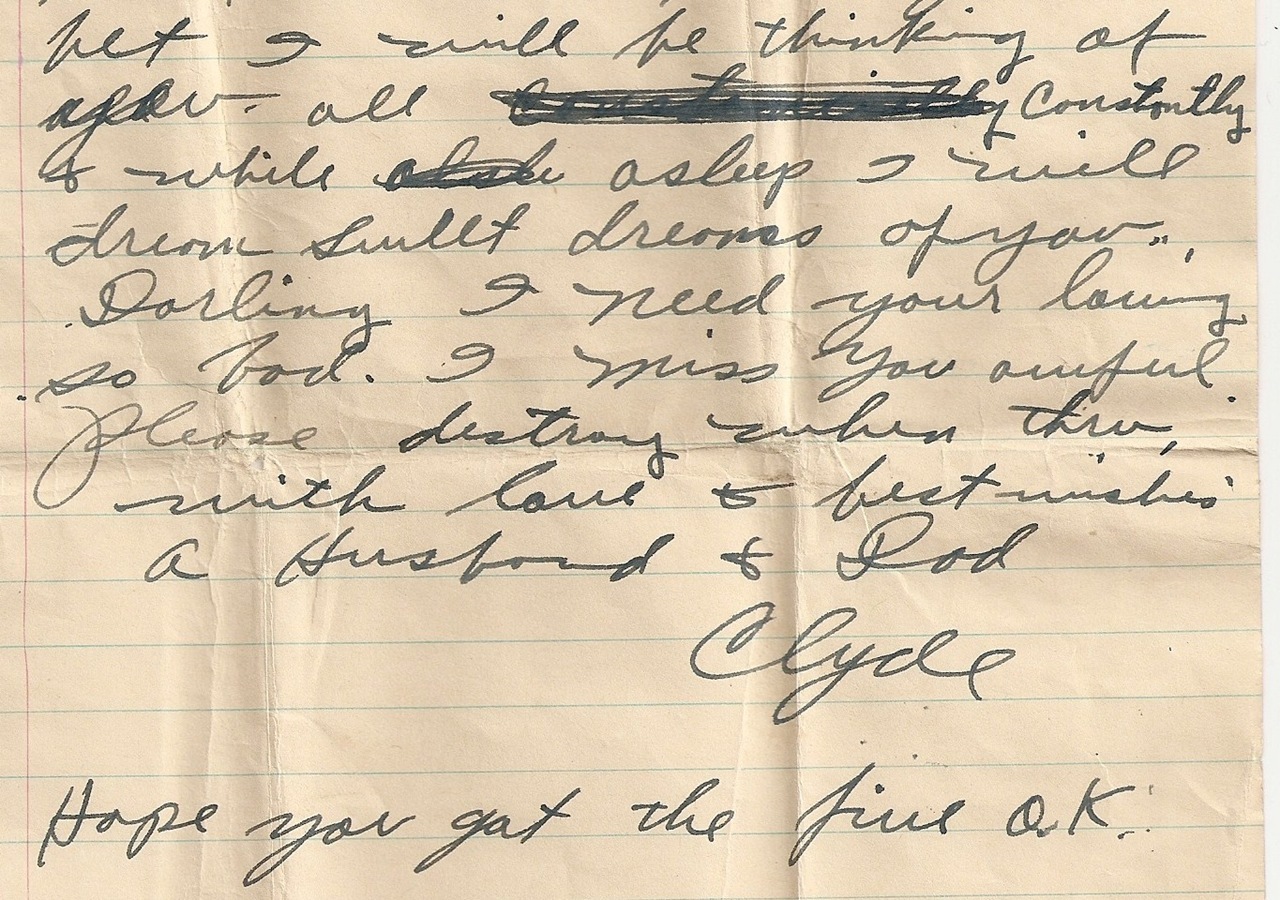 bet I will be thinking of
you all Constantly
& while asleep I will
dream sweet dreams of you..,
Darling I need your loving
so bad. I miss you awful
Please destroy when thru,
with love & best wishes
a Husband & Dad
Clyde
Hope you got the five O.K.